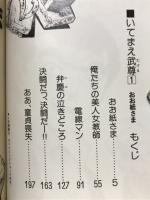 ■いてまえ武尊①
おお紙さま
もくじ
おお紙さま 5
俺たちの美人女教師 55
電線マン 91
弁慶の泣きどころ 127
決闘だっ、決闘だー!! 163
ああ、童貞喪失 197